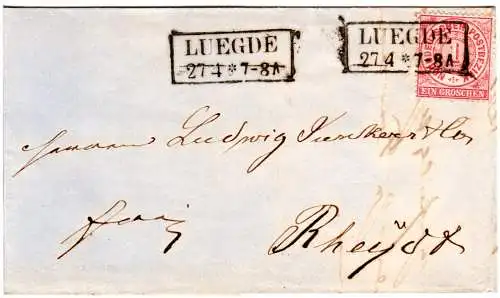 LUEGDE
27 4 * 7-8A
LUEGDE
27 4 * 7-8A
NORDDEUTSCHER POSTBEZIRK
1
EIN GROSCHEN
Herren Ludwig Junkers & Co
frei
Rheydt